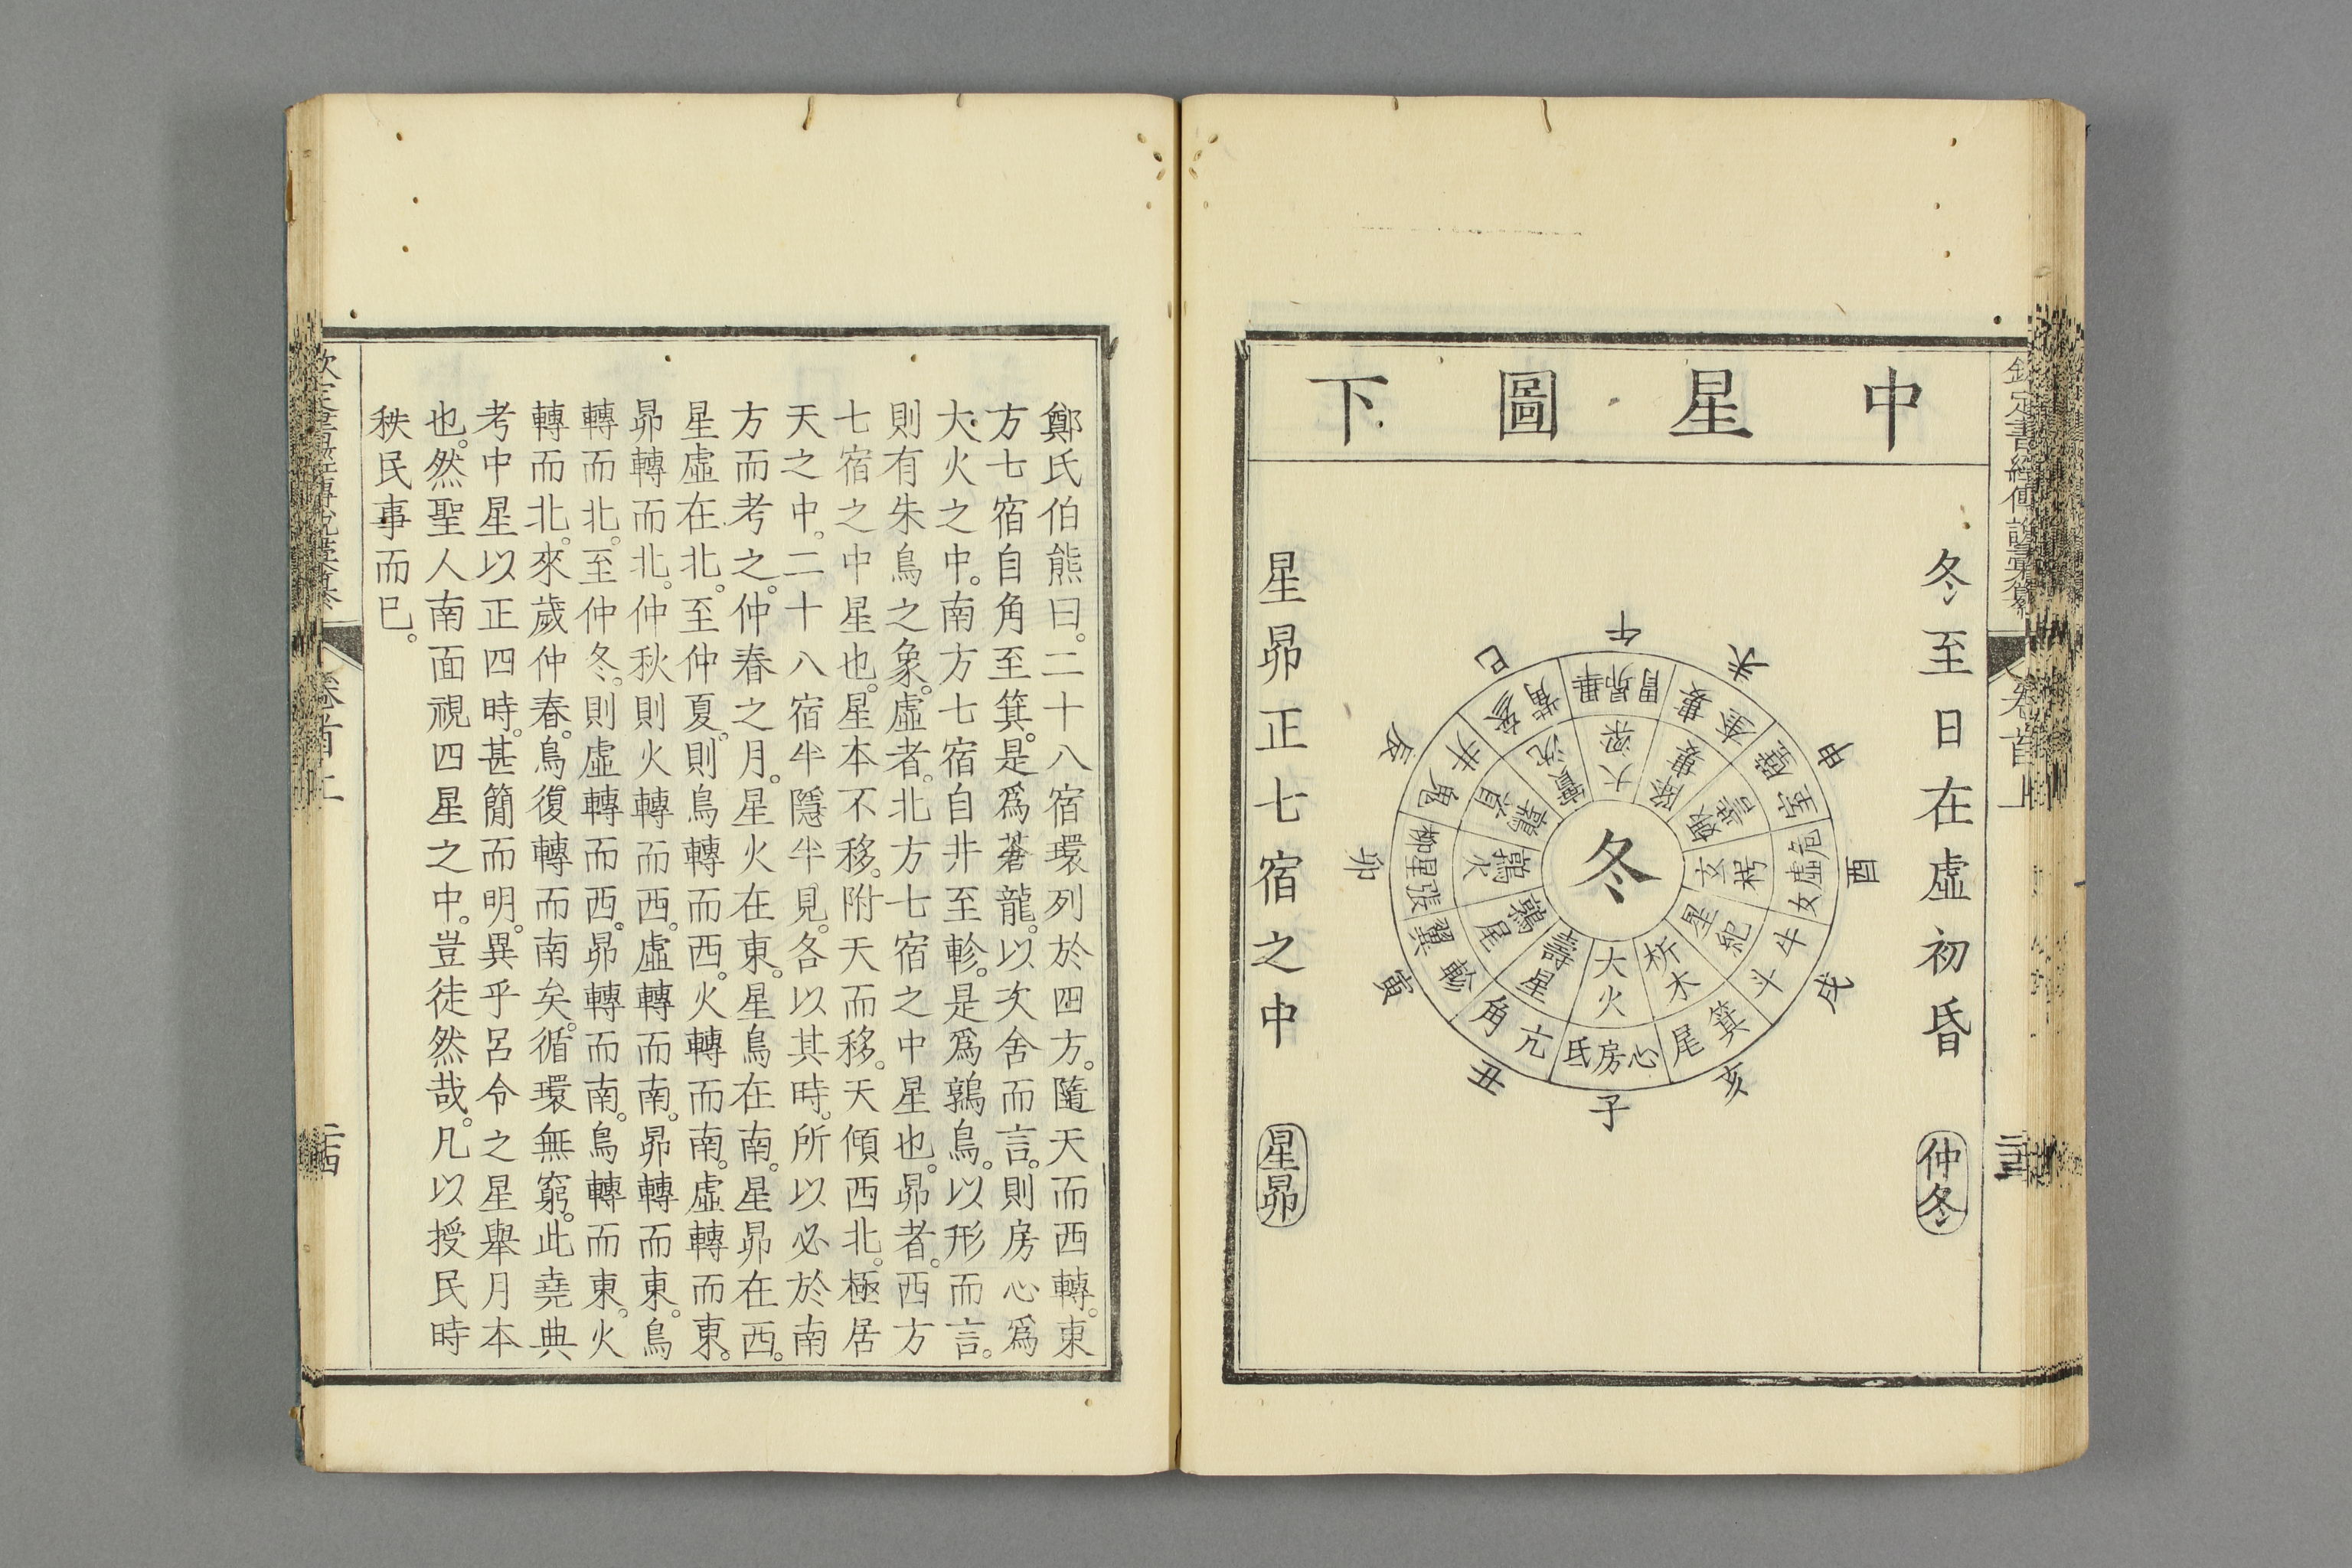 中星圖下
冬至日在虛初昏
仲冬
午
未
申
酉
戌
亥
子
丑
寅
卯
辰
巳
胃昴畢
婁奎
壁室
危虛女
牛斗
箕尾
心房氐
亢角
軫翼
張星柳
鬼井
參觜
大梁
降婁
娵訾
玄枵
星紀
析木
大火
壽星
鶉尾
鶉火
鶉首
實沈
冬
星昴正七宿之中
星昴
欽定書經傳說彙纂
卷首上
鄭氏伯熊曰。二十八宿環列於四方。隨天而西轉。東
方七宿自角至箕。是爲蒼龍。以次舍而言。則房心爲
大火之中。南方七宿自井至軫。是爲鶉鳥。以形而言。
則有朱鳥之象。虛者。北方七宿之中星也。昴者。西方
七宿之中星也。星本不移。附天而移。天傾西北。極居
天之中。二十八宿半隱半見。各以其時。所以必於南
方而考之。仲春之月。星火在東。星鳥在南。星昴在西。
星虛在北。至仲夏。則鳥轉而西。火轉而南。虛轉而東。
昴轉而北。仲秋則火轉而西。虛轉而南。昴轉而東。鳥
轉而北。至仲冬。則虛轉而西。昴轉而南。鳥轉而東。火
轉而北。來歲仲春。鳥復轉而南矣。循環無窮。此堯典
考中星以正四時。甚簡而明。異乎呂令之星舉月本
也。然聖人南面視四星之中。豈徒然哉。凡以授民時
秩民事而已。
卷首上